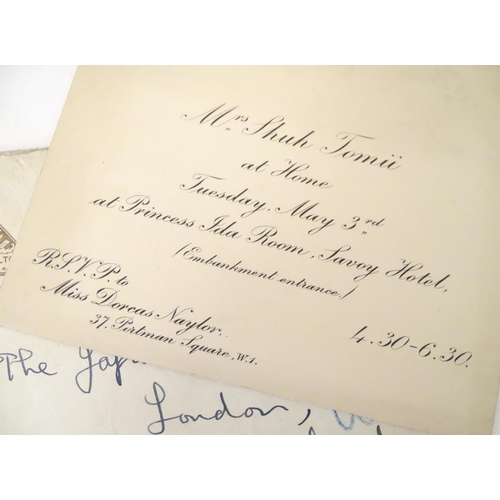 Mrs Shuh Tomii
at Home
Tuesday, May 3rd
at Princess Ida Room, Savoy Hotel,
(Embankment entrance.)
R.S.V.P. to
Miss Dorcas Naylor,
37, Portman Square, W.1.
4.30-6.30.
The
London,